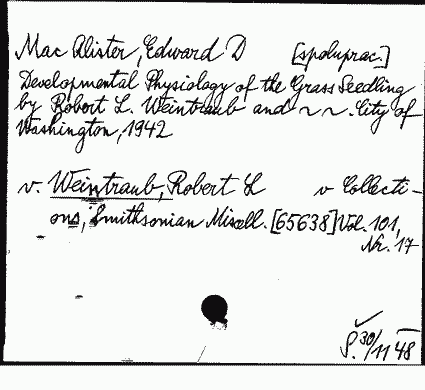 Mac Alister, Edward D [spoluprac.]
Developmental Physiology of the Grass Seedling
by Robert L. Weintraub and ~ ~. City of
Washington, 1942
v. Weintraub, Robert L v Collecti-
ons, Smithsonian Miscell. [65638] Vol. 101,
Nr. 17
S. 30/11 48